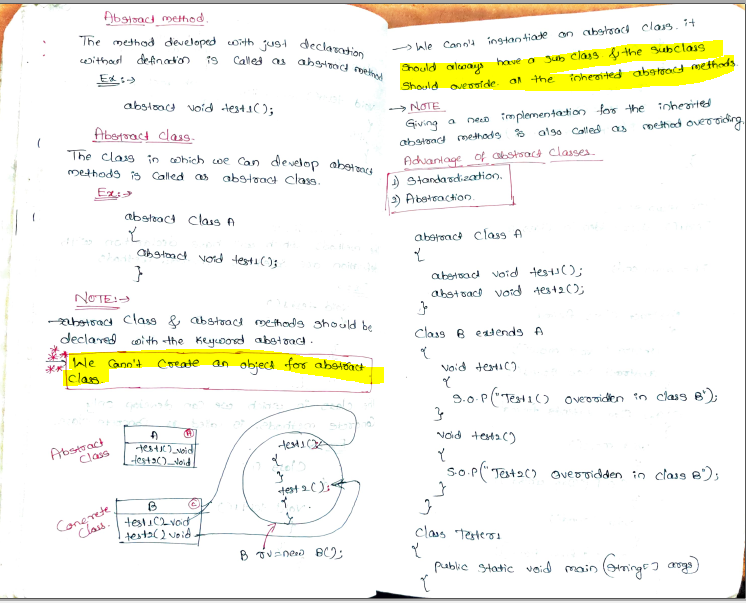 Abstract method.
The method developed with just declaration
without defination is called as abstract method
Ex:→
abstract void test1();
Abstract class.
The class in which we can develop abstract
methods is called as abstract class.
Ex:→
abstract class A
{
abstract void test1();
}
NOTE:→
→abstract class & abstract methods should be
declared with the keyword abstract.
→ We cann't create an object for abstract
class.
Abstract
class
A
test1()_void
test2()_void
Concrete
class.
B
C
test1()_void
test2()_void
test1()
{
}
test2();
{
}
B rv=new B();
→ We cann't instantiate an abstract class. it
should always have a sub class & the subclass
should override all the inherited abstract methods.
→ NOTE
Giving a new implementation for the inherited
abstract methods is also called as method overriding.
Advantage of abstract classes.
1) Standardization.
2) Abstraction.
abstract class A
{
abstract void test1();
abstract void test2();
}
class B extends A
{
void test1()
{
S.O.P("Test1() overridden in class B");
}
void test2()
{
S.O.P("Test2() overridden in class B");
}
}
class Tester1
{
public static void main (String[] args)
{